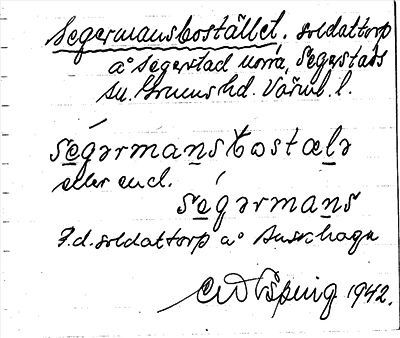 Segermansbostället. soldattorp
å Segerstad norra, Segerstads
sn. Grums hd. Värml. l.
segərmansbostælə
eller end.
segərmans
F.d. soldattorp å
1942.